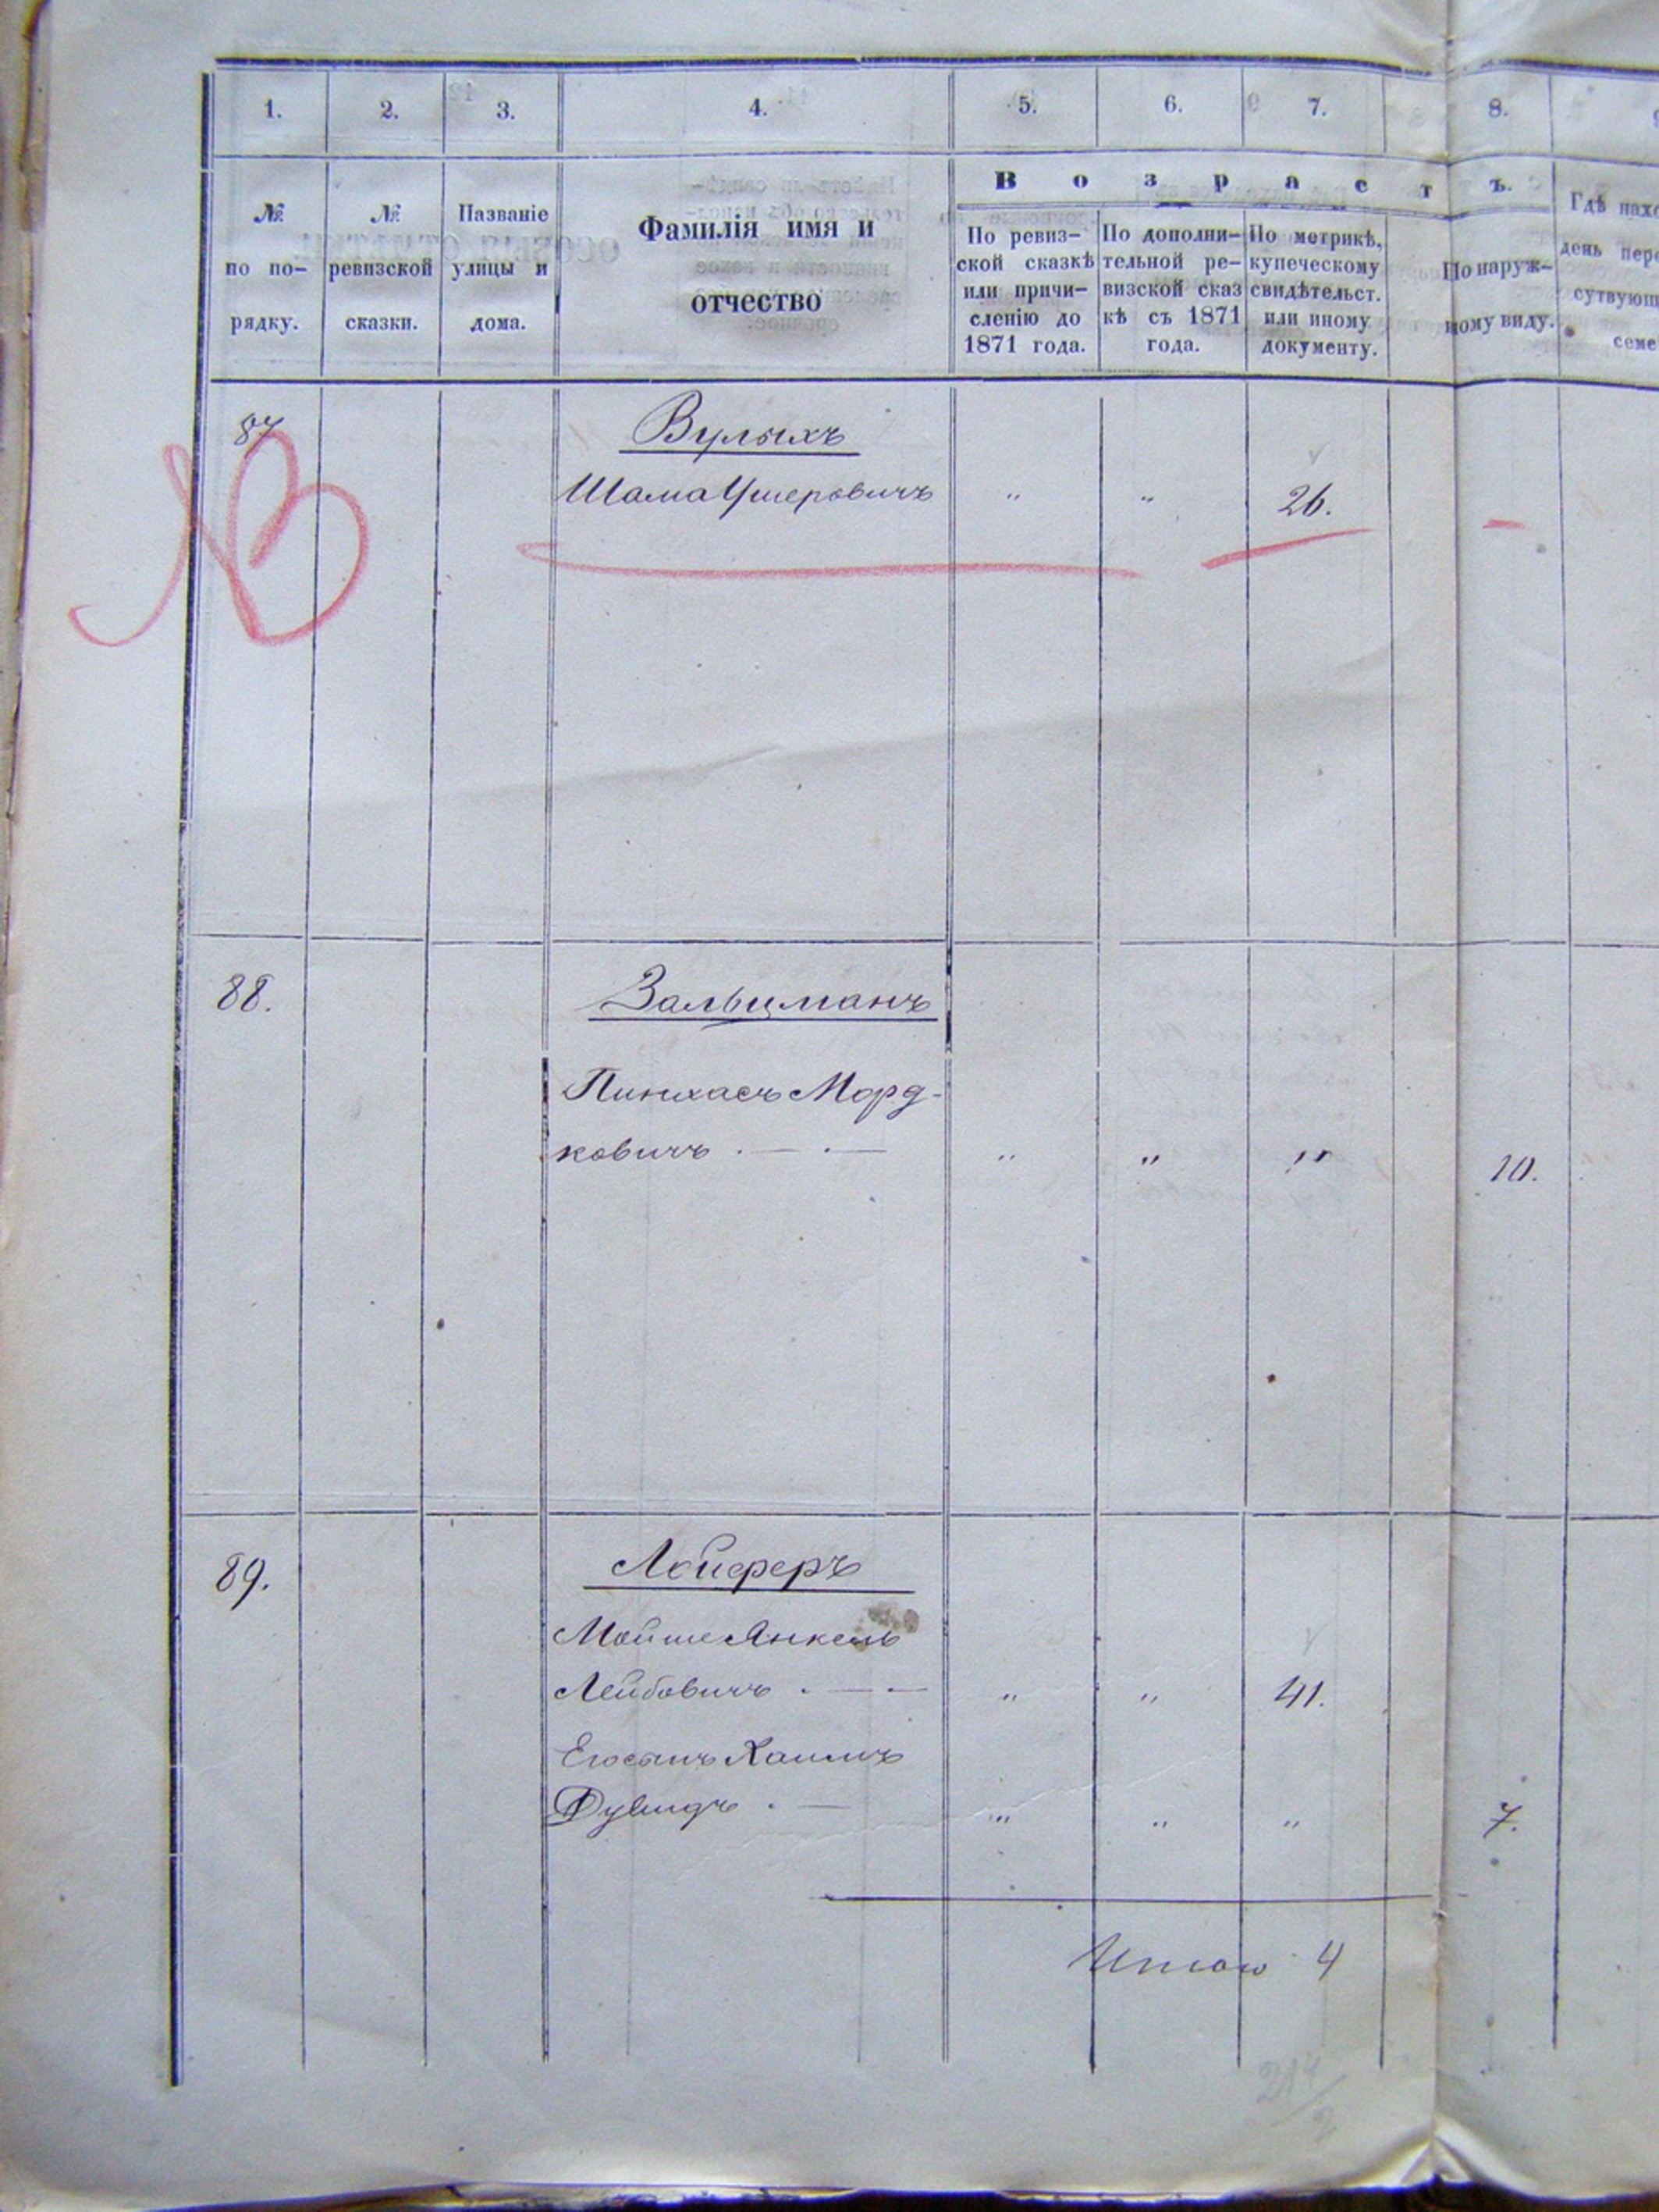 1. 2. 3. 4. 5. 6. 7. 8.
Возрастъ.
№ по порядку.
№ ревизской сказки.
Названіе улицы и дома.
Фамилія имя и
отчество
По ревиз-
ской сказкѣ
или причи-
сленію до
1871 года.
По дополни-
тельной ре-
визской сказ
кѣ съ 1871
года.
По метрикѣ,
купеческому
свидѣтельст.
или иному
документу.
По наруж-
ному виду.
Гдѣ
день
семе
87
Вулыхъ
Шама Ушеровичъ " " 26.
88.
Зальцманъ
Пинхасъ Морд-
ковичъ " " " 10.
89.
Лойферъ
Мойше Янкель
Лейбовичъ " " 41.
Его сынъ Хаимъ
Дувидъ " " " 7.
Итого 4